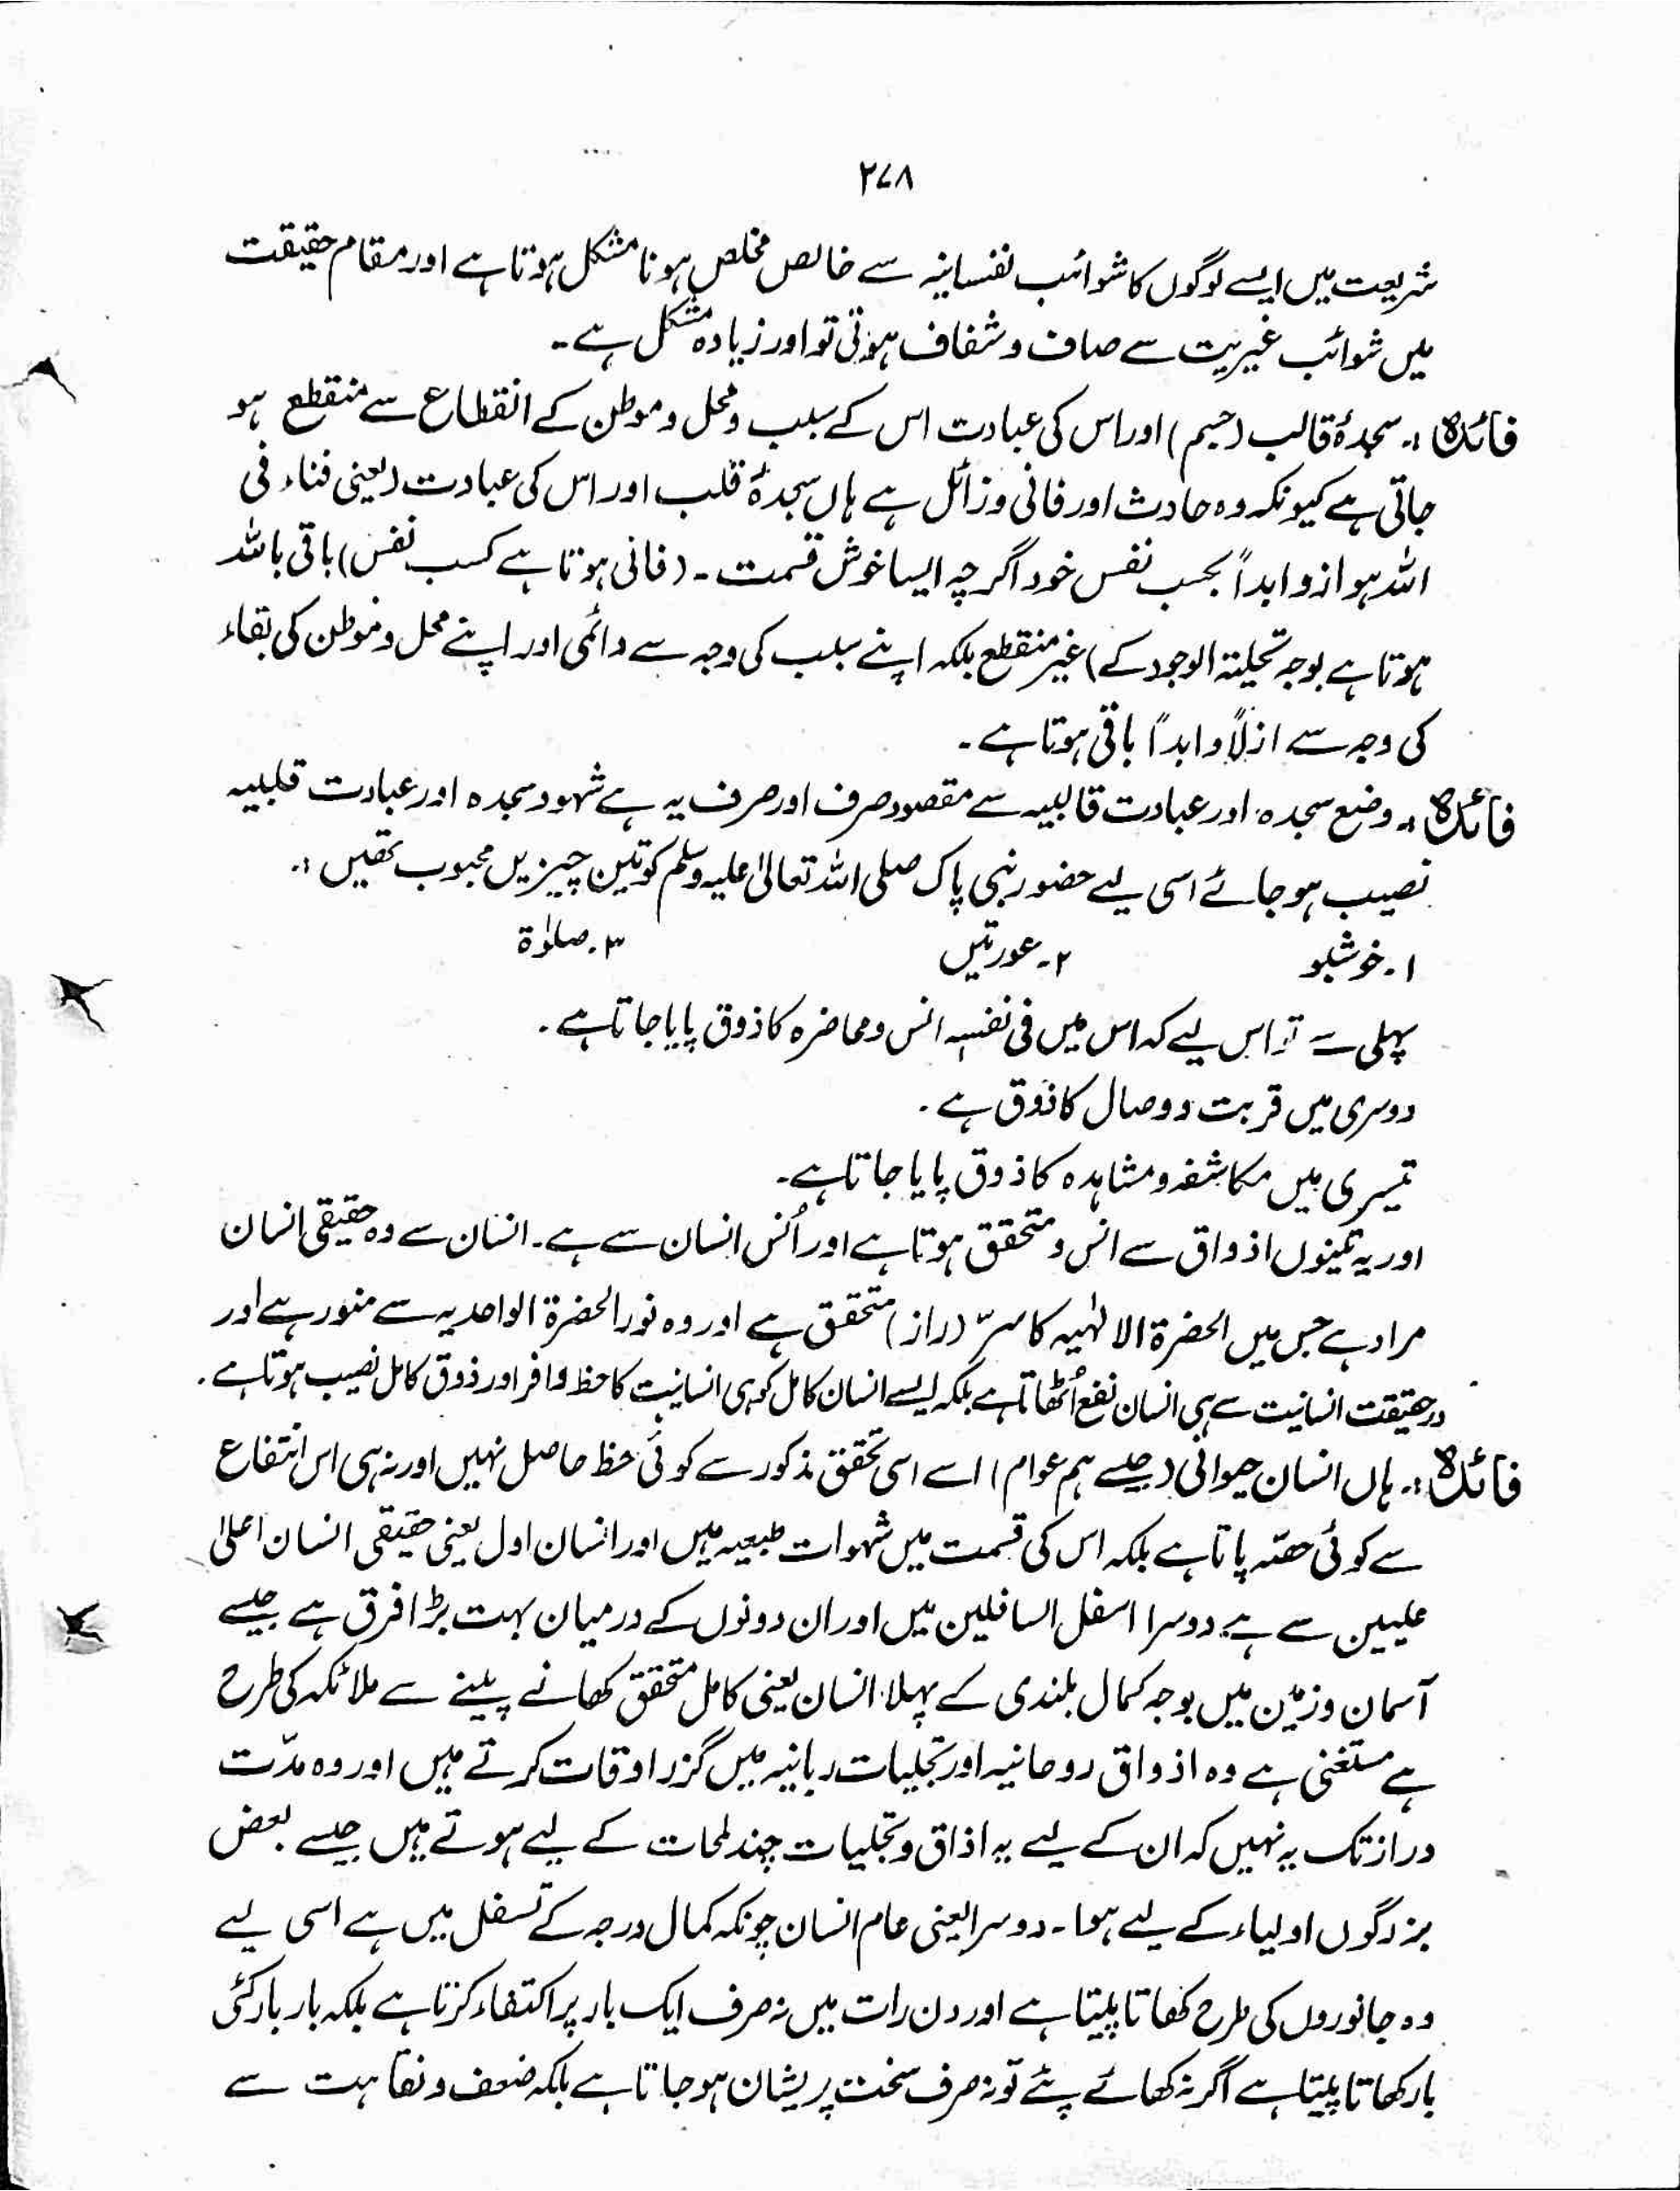 ۲۷۸
شریعت میں ایسے لوگوں کا شوائب نفسانیہ سے خالص مخلص ہونا مشکل ہوتا ہے اور مقام حقیقت
میں شوائب غیریت سے صاف و شفاف ہوتی تو اور زیادہ مشکل ہے۔
فائدہ :۔ سجدۂ قالب (جسم) اور اس کی عبادت اس کے سبب و محل و موطن کے انقطاع سے منقطع ہو
جاتی ہے کیونکہ وہ حادث اور فانی و زائل ہے ہاں سجدۂ قلب اور اس کی عبادت (یعنی فناء فی
اللہ ہو ازو ابداً بحسب نفس خود اگرچہ ایسا خوش قسمت۔ (فانی ہوتا ہے کسب نفس) باقی باللہ
ہوتا ہے بوجہ تحیلتہ الوجود کے) غیر منقطع بلکہ اپنے سبب کی وجہ سے دائمی اور اپنے محل و موطن کی بقاء
کی وجہ سے ازلاً و ابداً باقی ہوتا ہے۔
فائدہ :۔ وضع سجدہ اور عبادت قالبیہ سے مقصود صرف اور صرف یہ ہے شہود سجدہ اور عبادت قلبیہ
نصیب ہو جائے اسی لیے حضور نبی پاک صلی اللہ تعالیٰ علیہ وسلم کو تین چیزیں محبوب تھیں :۔
۱۔ خوشبو ۲۔ عورتیں ۳۔ صلوٰۃ
پہلی سے تو اس لیے کہ اس میں فی نفسہٖ انس و محاضرہ کا ذوق پایا جاتا ہے۔
دوسری میں قربت و وصال کا ذوق ہے۔
تیسری میں مکاشفہ و مشاہدہ کا ذوق پایا جاتا ہے۔
اور یہ تینوں اذواق سے انس و متحقق ہوتا ہے اور اُنس انسان سے ہے۔ انسان سے وہ حقیقی انسان
مراد ہے جس میں الحضرۃ الالٰہیہ کا سرّ (راز) متحقق ہے اور وہ نور الحضرۃ الواحدیہ سے منور ہے اور
درحقیقت انسانیت سے ہی انسان نفع اُٹھاتا ہے بلکہ ایسے انسان کامل کو ہی انسانیت کا حظ وافر اور ذوق کامل نصیب ہوتا ہے۔
فائدہ :۔ ہاں انسان حیوانی (جیسے ہم عوام) اسے اسی تحقق مذکور سے کوئی حظ حاصل نہیں اور نہ ہی اس انتفاع
سے کوئی حصّہ پاتا ہے بلکہ اس کی قسمت میں شہوات طبعیہ ہیں اور انسان اول یعنی حقیقی انسان اعلیٰ
علیین سے ہے دوسرا اسفل السافلین میں اور ان دونوں کے درمیان بہت بڑا فرق ہے جیسے
آسمان و زمین میں بوجہ کمال بلندی کے پہلا انسان یعنی کامل متحقق کھانے پینے سے ملائکہ کی طرح
ہے مستغنی ہے وہ اذواق روحانیہ اور تجلیات ربانیہ میں گزر اوقات کرتے ہیں اور وہ مدّت
دراز تک یہ نہیں کہ ان کے لیے یہ اذاق و تجلیات چند لمحات کے لیے ہوتے ہیں جیسے بعض
بزرگوں اولیاء کے لیے ہوا۔ دوسرا یعنی عام انسان چونکہ کمال درجہ کے تسفل میں ہے اسی لیے
وہ جانوروں کی طرح کھاتا پیتا ہے اور دن رات میں نہ صرف ایک بار پر اکتفاء کرتا ہے بلکہ بار بار کئی
بار کھاتا پیتا ہے اگر نہ کھائے پئے تو نہ صرف سخت پریشان ہو جاتا ہے بلکہ ضعف و نقاہت سے